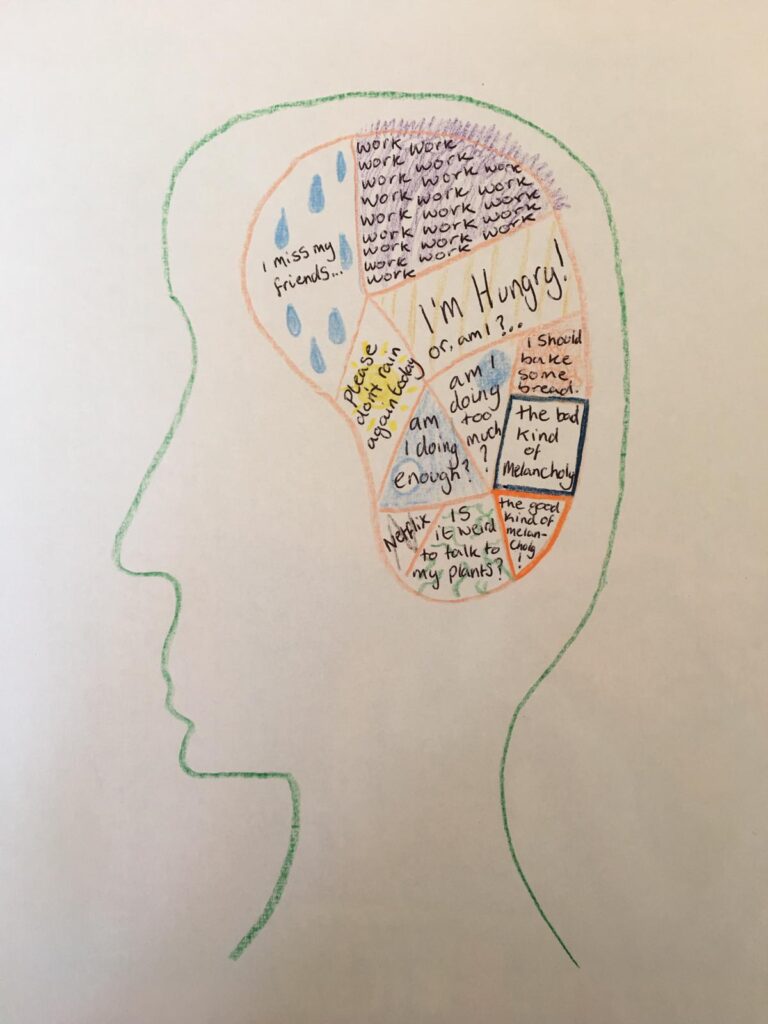 I miss my
friends...
work work
work work
work work work
work work work
work work work
work work work
work work work
work work
work
I'm Hungry!
or, am I?..
Please
don't rain
again today
am I
doing
too
much
?
I should
bake
some
bread.
am
I doing
enough?
the bad
kind
of
Melancholy
Netflix
IS
it weird
to talk to
my plants?
the good
kind of
melan-
choly
!